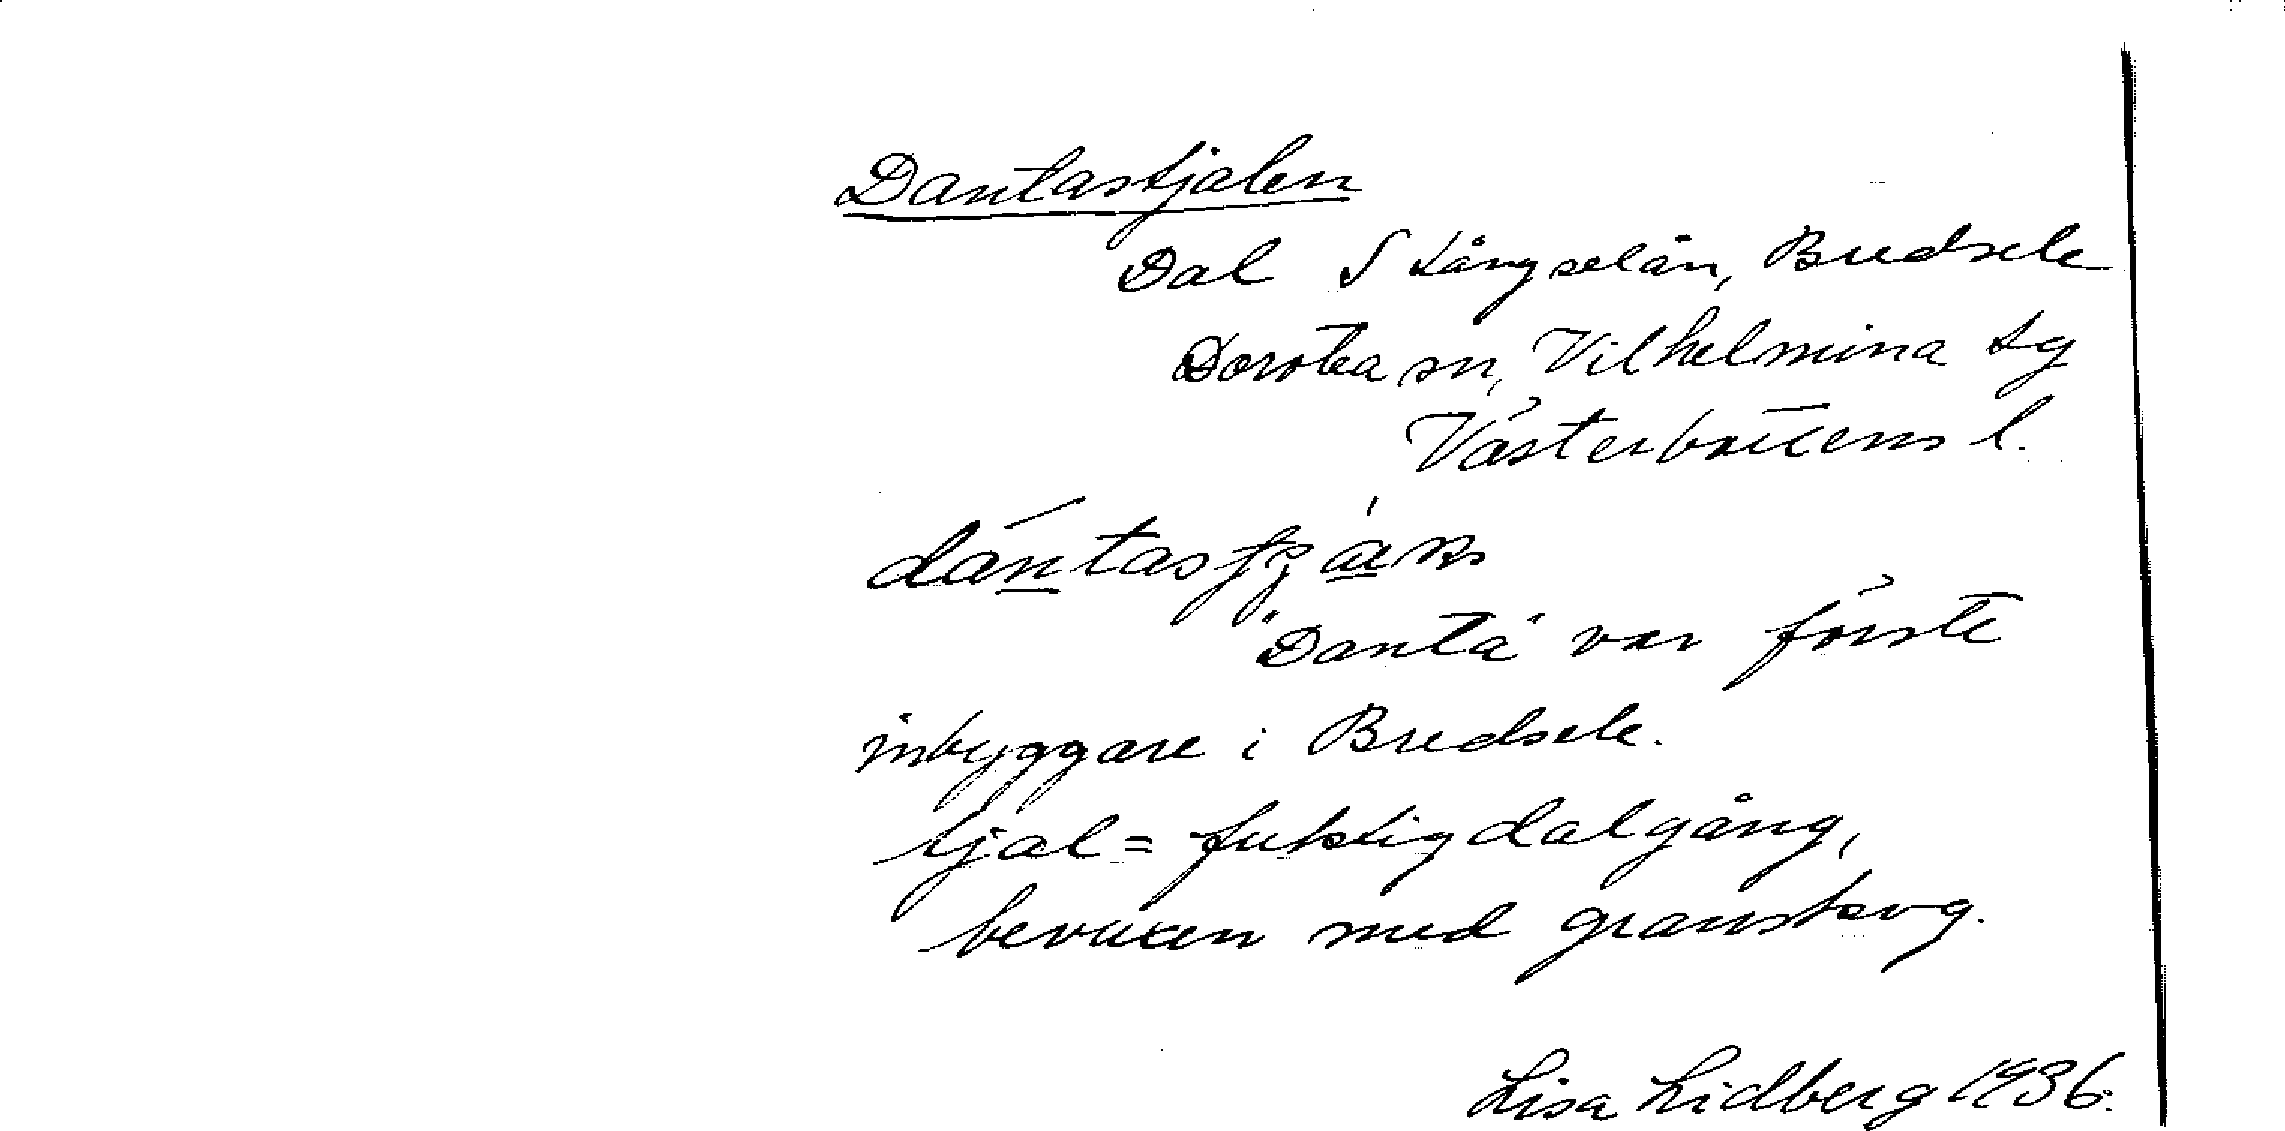 Dantastjalen
Dal S Långselån, Bredsele
Dorotea sn, Vilhelmina tg
Västerbottens l.
"Danta" var förste
inbyggare i Bredsele.
tjal = fuktig dalgång,
bevuxen med granskog.
Lisa Lidberg 1936.